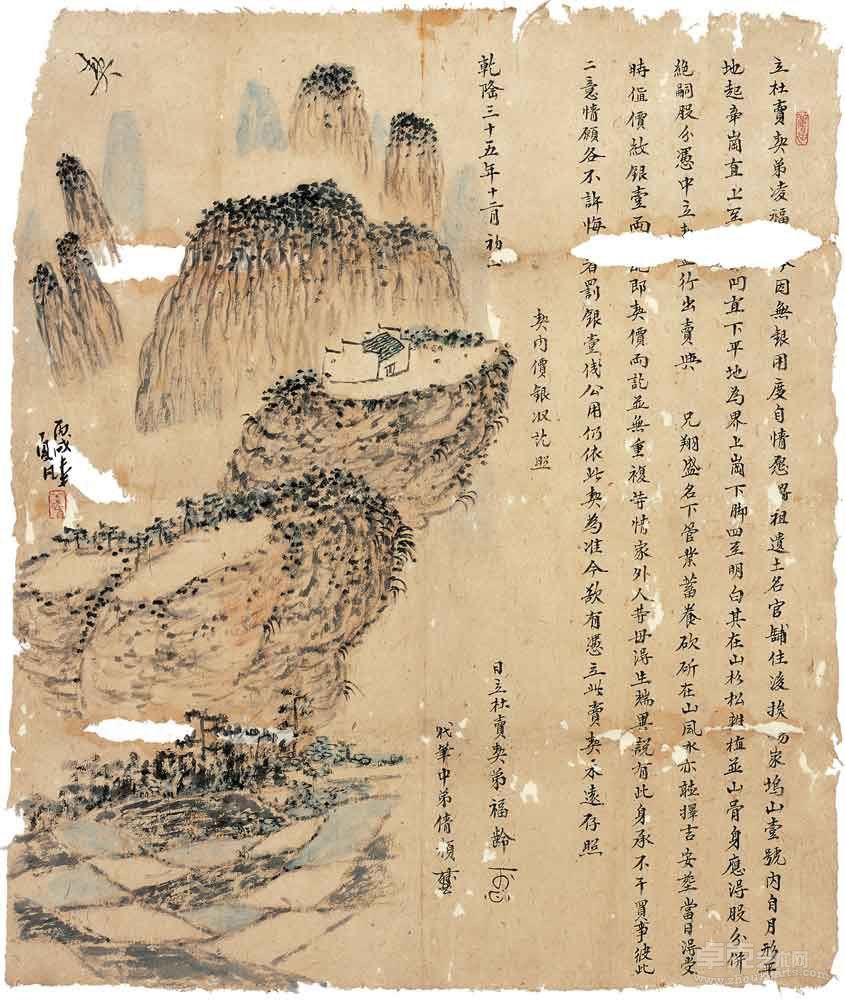 立杜賣契弟凌福 今因無銀用度自情愿將祖遺土名官舖住後挨 家塢山壹號內自月形平
地起牽崗直上至 凹直下平地為界上崗下脚四至明白其在山杉松雜植並山骨身應得股分併
絕嗣股分憑中立 行出賣與 兄翔盛名下管業蓄養砍斫在山風水亦聽擇吉安塟當日得受
時值價紋銀壹両 即契價両訖並無重複等情家外人等毋得生端異說有此身承不干買事彼此
二意情願各不許悔 者罰銀壹錢公用仍依此契為准今欲有憑立此賣契永遠存照
契內價銀收訖照
乾隆三十五年十二月初 日立杜賣契弟福齡
代筆中弟倩順
契
丙戌春
夏月
www.zhuokearts.com